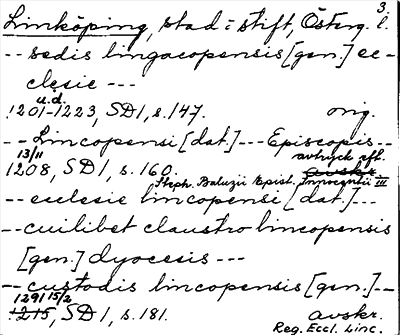 3.
Linköping, stad o. stift, Österg. l.
-- sedis lingacopensis [gen.] ec-
clesie ---
u.d.
1201-1223, SD1, s. 147. orig.
-- Lincopensi [dat.] --- Episcopis --
13/11 avtryck eft.
1208, SD1, s. 160. avskr.
Steph. Baluzii Epist. Innocentii III
-- ecclesie lincopensi [dat.] --
-- cuilibet claustro lincopensis
[gen.] dyocesis ---
-- custodis lincopensis [gen.] --
1291 15/2
1215, SD1, s. 181. avskr.
Reg. Eccl. Linc.